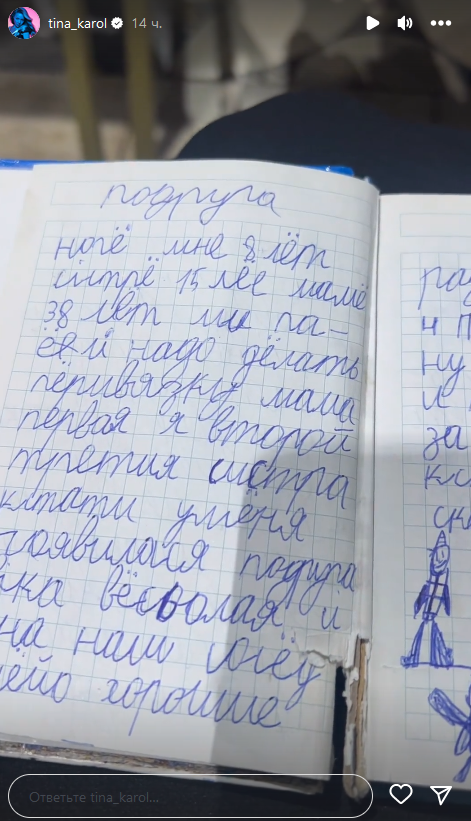 tina_karol 14 ч.
подруга
ногё мне 8 лёт
систрё 15 лее мамё
38 лет ми па-
ёей надо дёлать
пёривязку мама
первая я второй
третия систра
кстати умёня
появилася подруга
вёсьолая и
на наш сонёд
хорошие
ра
н п
ну
л
за
кл
ск
Ответьте tina_karol...